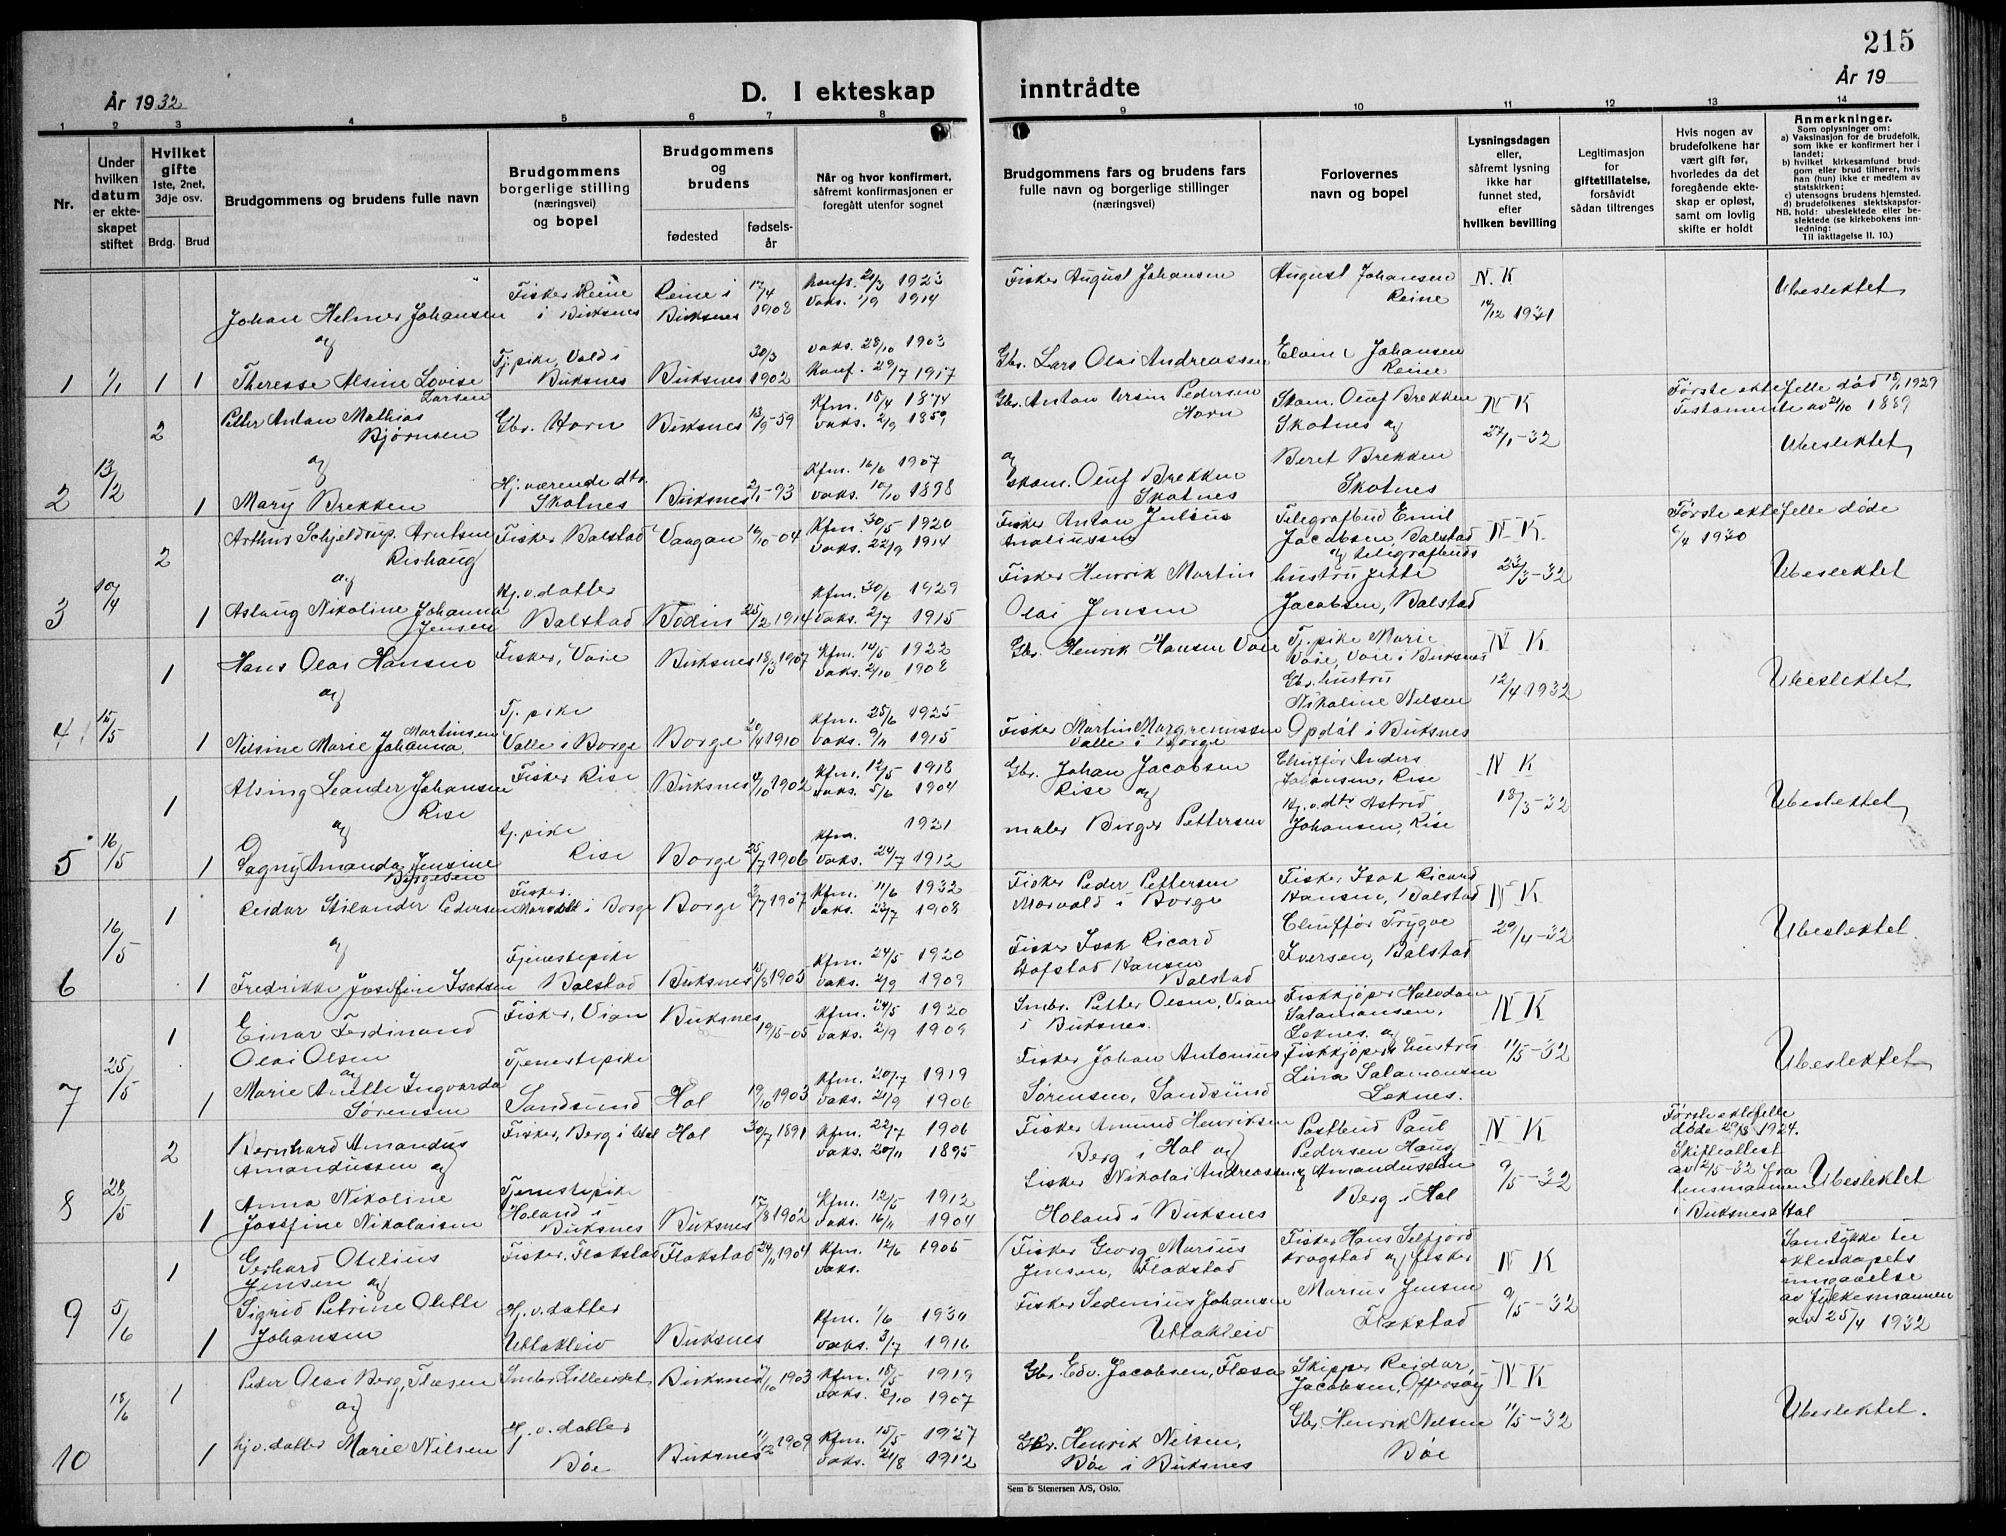 215
År 1932
D. I ekteskap
inntrådte
År 19
1 2 3 4 5 6 7 8 9 10 11 12 13 14
Nr.
Under hvilken datum er ekteskapet stiftet
Hvilket gifte
1ste, 2net, 3dje osv.
Brdg. Brud
Brudgommens og brudens fulle navn
Brudgommens borgerlige stilling (næringsvei) og bopel
Brudgommens og brudens
fødested
fødselsår
Når og hvor konfirmert, såfremt konfirmasjonen er foregått utenfor sognet
Brudgommens fars og brudens fars fulle navn og borgerlige stillinger (næringsvei)
Forlovernes navn og bopel
Lysningsdagen eller, såfremt lysning ikke har funnet sted, efter hvilken bevilling
Legitimasjon for giftetillatelse, forsåvidt sådan tiltrenges
Hvis nogen av brudefolkene har vært gift før, hvorledes da det foregående ekteskap er opløst, samt om lovlig skifte er holdt
Anmerkninger.
Som oplysninger om:
a) Vaksinasjon for de brudefolk, som ikke er konfirmert her i landet;
b) hvilket kirkesamfund brudgom eller brud tilhører, hvis han (hun) ikke er medlem av statskirken;
c) utensogns brudens hjemsted.
d) brudefolkenes slektskapsforhold: ubeslektede eller beslektede (se kirkebokens innledning:
NB.
Til iakttagelse II. 10.)
1 1/1 1 1
Johan Helmer Johansen
og
Theresse Alsine Lovise Larsen
Fisker Reine i Buksnes
Tj. pike, Vold i Buksnes
Reine i Buksnes 17/4 1902
Buksnes 30/3 1902
Konf. 1923
Vaks. 1/9 1914
Vaks. 28/10 1903
Konf. 29/7 1917
Fisker August Johansen
Gbr. Lars Olai Andreassen
August Johansen Reine
Johansen Reine
N. K 14/12 1931
Ubeslektet
2 13/2 2 1
Petter Anton Mathias Bjørnsen
og
Mary Brekken
Gbr. Horn
Hj. værende dtr. Skotnes
Buksnes 13/9-59
Buksnes 2/1-93
Kfm. 15/4 1874
Vaks. 2/9 1859
Kfm. 16/6 1907
Vaks. 10/10 1898
Gbr. Anton Ursin Pedersen Horn
og
Skom. Oluf Brekken Skotnes
Skom. Oluf Brekken Skotnes og
Beret Brekken Skotnes
N K 27/1-32
Første ektefelle død 15/1 1929
Testamente av 21/10 1889
Ubeslektet
3 10/4 2 1
Arthur Schjeldrup Arntsen Rishaug
og
Aslaug Nikoline Johanna Jensen
Fisker Balstad
Hj. v. datter Balstad
Vaagan 16/10-04
Bodin 25/2 1914
Kfm. 30/5 1920
Vaks. 22/9 1914
Kfm. 30/6 1929
Vaks. 2/7 1915
Fisker Anton Julius Analiussen
Fisker Henrik Martin Olai Jensen
Telegrafbud Emil Jacobsen, Balstad
og telegrafbuds hustru Jette Jacobsen, Balstad
N K 23/3-32
Første ektefelle døde 6/4 1930
Ubeslektet
4 15/5 1 1
Hans Olai Hansen
og
Nilsine Marie Johanna Martinsen
Fisker, Voie
Tj. pike Valle i Borge
Buksnes 18/3 1907
Borge 20/4 1910
Kfm. 14/5 1922
Vaks. 2/10 1908
Kfm. 25/6 1925
Vaks. 9/11 1915
Gbr. Henrik Hansen Voie
Fisker Martin Margrenussen Valle i Borge
Tj. pike Marie Voie, Voie i Buksnes
Gbr. hustru Nikoline Nilsen Opdøl i Buksnes
N K 12/4 1932
Ubeslektet
5 16/5 1 1
Alsing Leander Johansen Rise
og
Dagny Amanda Jensine Birgesen
Fisker Rise
Tj. pike Rise
Buksnes 4/10 1902
Borge 25/7 1906
Kfm. 12/5 1918
Vaks. 5/6 1904
Kfm. 1921
Vaks. 24/7 1912
Gbr. Johan Jacobsen Rise og
maler Birger Pettersen
Chuffør Anders Johansen, Rise
Hj. v. dtr. Astrid Johansen, Rise
N K 18/3-32
Ubeslektet
6 16/5 1 1
Reidar Stilander Pedersen
og
Fredrikke Josefine Isaksen
Fisker. Morvold i Borge
Tjenestepike Balstad
Borge 2/7 1907
Buksnes 15/8 1905
Kfm. 11/6 1932
Vaks. 23/7 1908
Kfm. 24/5 1920
Vaks. 2/9 1909
Fisker Peder Pettersen Morvold i Borge
Fisker Isak Ricard Hofstad Hansen Balstad
Fisker Isak Ricard Hansen, Balstad
Chuffør Trygve Iversen, Balstad
N K 29/4-32
Ubeslektet
7 25/5 1 1
Einar Ferdinand Olai Olsen
og
Marie Anette Ingvarda Sørensen
Fisker, Vian
Tjenestepike Sandsund
Buksnes 19/5-05
Hol 19/10 1903
Kfm. 24/5 1920
Vaks. 2/9 1909
Kfm. 20/7 1919
Vaks. 21/9 1906
Smbr. Petter Olsen, Vian i Buksnes.
Fisker Johan Antonius Sørensen, Sandsund
Fiskkjøper Halvdan Salamonsen, Leknes. og
Fiskkjøpers hustru Lina Salamonsen Leknes.
N K 11/5-32
Ubeslektet
8 28/5 2 1
Bernhard Amandus Amandussen og
Anna Nikoline Josefine Nikolaisen
Fisker, Berg i Hol
Tjenestepike Holand i Buksnes
Hol 30/7 1891
Buksnes 17/8 1902
Kfm. 22/7 1906
Vaks. 20/11 1895
Kfm. 12/5 1912
Vaks. 16/11 1904
Fisker Amund Henriksen Berg i Hol og
Fisker Nikolai Andreassen Holand i Buksnes
Postbud Paul Pedersen Haug
og Amandussen Berg i Hol
N K 9/5-32
Første ektefelle døde 29/3 1924.
Skifteattest av 2/5-32 fra lensmannen i Buksnes & Hol
Ubeslektet
9 5/6 1 1
Gerhard Otelius Jensen og
Sigrid Petrine Olette Johansen
Fisker, Flakstad
Hj. v. datter Uttakleiv
Flakstad 24/11 1904
Buksnes
Kfm. 12/6 1905
Vaks.
Kfm. 1/6 1930
Vaks. 3/7 1916
Fisker Georg Marius Jensen, Flakstad
Fisker Sedenius Johansen Uttakleiv
Fisker Hans Selfjord Krogstad og fisker
Marius Jensen Flakstad
N K 9/5-32
Samtykke til ekteskapets inngaaelse av fylkesmannen av 25/4 1932
10 18/6 1 1
Peder Olai Berg, Flæsen
og
hj v. datter Marie Nilsen
Smbr. Lilleeidet
Hj. v. datter Bøe
Buksnes 17/10 1903
Buksnes 11/12 1909
Kfm. 18/5 1919
Vaks. 8/10 1907
Kfm. 15/5 1927
Vaks. 21/8 1912
Gbr. Edv. Jacobsen, Flæsa
Gbr. Henrik Nilsen, Bøe i Buksnes
Skipper Reidar Jacobsen, Offersøy
Gbr. Henrik Nilsen Bøe
N K 11/5-32
Ubeslektet.
Sem & Stenersen A/S, Oslo.